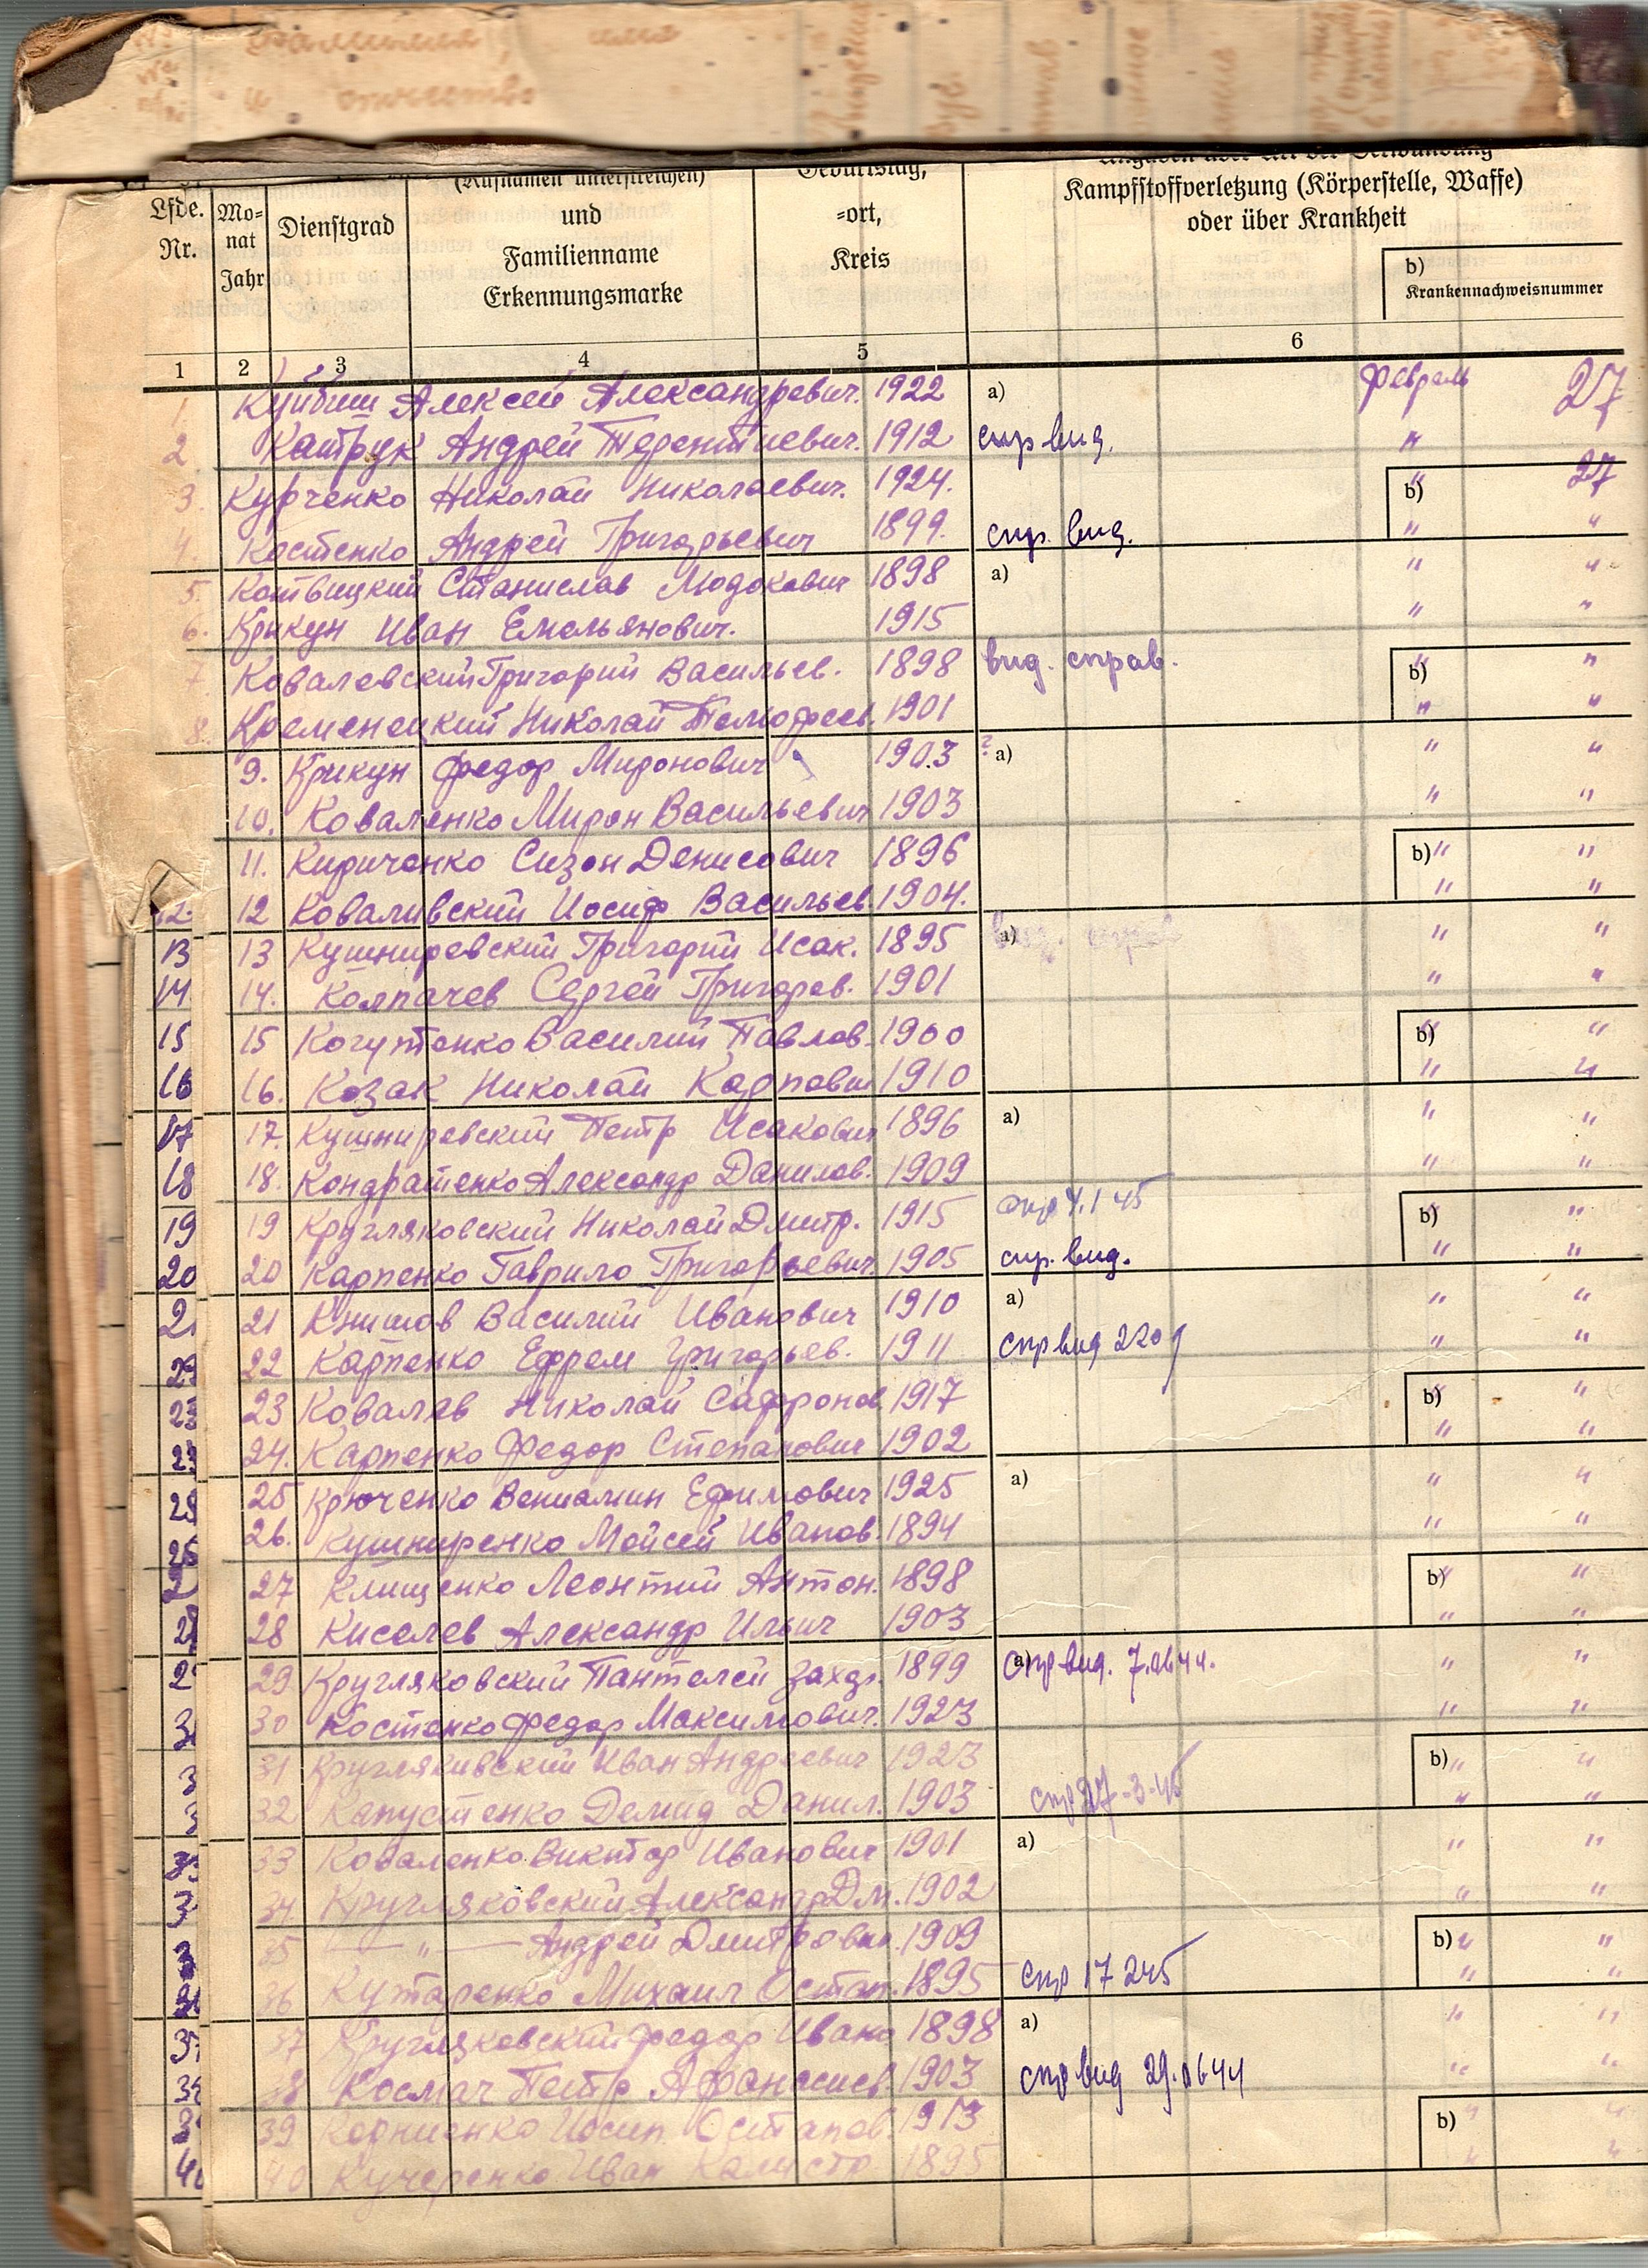 (Rufnamen unterstreichen)
Geburtstag,
Lfde. Nr.
Mo=
nat
Jahr
Dienstgrad
und
Familienname
Erkennungsmarke
=ort,
Kreis
Kampfstoffverletzung (Körperstelle, Waffe)
oder über Krankheit
b)
Krankennachweisnummer
1 2 3 4 5 6
1. Куйбиш Алексей Александревич. 1922 a) февраль 27
2. Катрук Андрей Терентиевич. 1912 спр вид. "
3. Курченко Николай Николаевич. 1924. b) " 27
4. Костенко Андрей Григорьевич 1899. спр. вид. " "
5. Котвицкий Станислав 1898 a) " "
6. Крикун Иван Емельянович. 1915 " "
7. Ковалевский Григорий Васильев. 1898 вид. справ. b) " "
8. Кременецкий Николай Темофеев. 1901 " "
9. Крикун Федор Миронович 1903 ? a) " "
10. Коваленко Мирон Васильевич 1903 " "
11. Кириченко Сизон Денисович 1896 b) " "
12. 12 Коваливский Иосиф Васильев. 1904. " "
13 13 Кушниревский Григорий Исак. 1895 a) вид. справ " "
14 14. Колпачев Сергей Григорев. 1901 " "
15 15 Когутенко Василий Павлов. 1900 b) " "
16 16. Козак Николай Карпович 1910 " "
17 17. Кушниревский Петр Исакович 1896 a) " "
18 18. Кондратенко Александр Данилов. 1909 " "
19 19 Кругляковский Николай Дмитр. 1915 спр 4.1 45 b) " "
20 20 Карпенко Гаврило Григорьевич. 1905 спр. вид. " "
21 21 Книшов Василий Иванович 1910 a) " "
22 Карпенко Ефрем Григорьев. 1911 спр вид " "
23 23 Ковалев Николай Сафронов. 1917 b) " "
24. Карпенко Федор Степанович 1902 " "
25 Крюченко Вениамин Ефимович 1925 a) " "
26 26. Кушниренко Мойсей Иванов. 1894 " "
27 Клищенко Леонтий Антон. 1898 b) " "
28 Киселев Александр Ильич 1903 " "
29 Кругляковский Пантелей Захар. 1899 a) спр вид. " "
30 Костенко Федор Максимович. 1923 " "
31 Кругляковский Иван Андреевич 1923 b) " "
32 Капустенко Демид Данил. 1903 спр 27-3-45 " "
33 Коваленко Виктор Иванович 1901 a) " "
34 Кругляковский Александр Дм. 1902 " "
35 — " — Андрей Дмитрович. 1909 b) " "
36 Михаил Остап. 1895 спр 17 2 45 " "
37 Кругляковский Федор Ивано 1898 a) " "
38 Космач Петр Афанасиев 1903 спр вид " "
39 Корниенко Иосип Остапов. 1913 b) " "
40 40 Кучеренко Иван 1895 " "